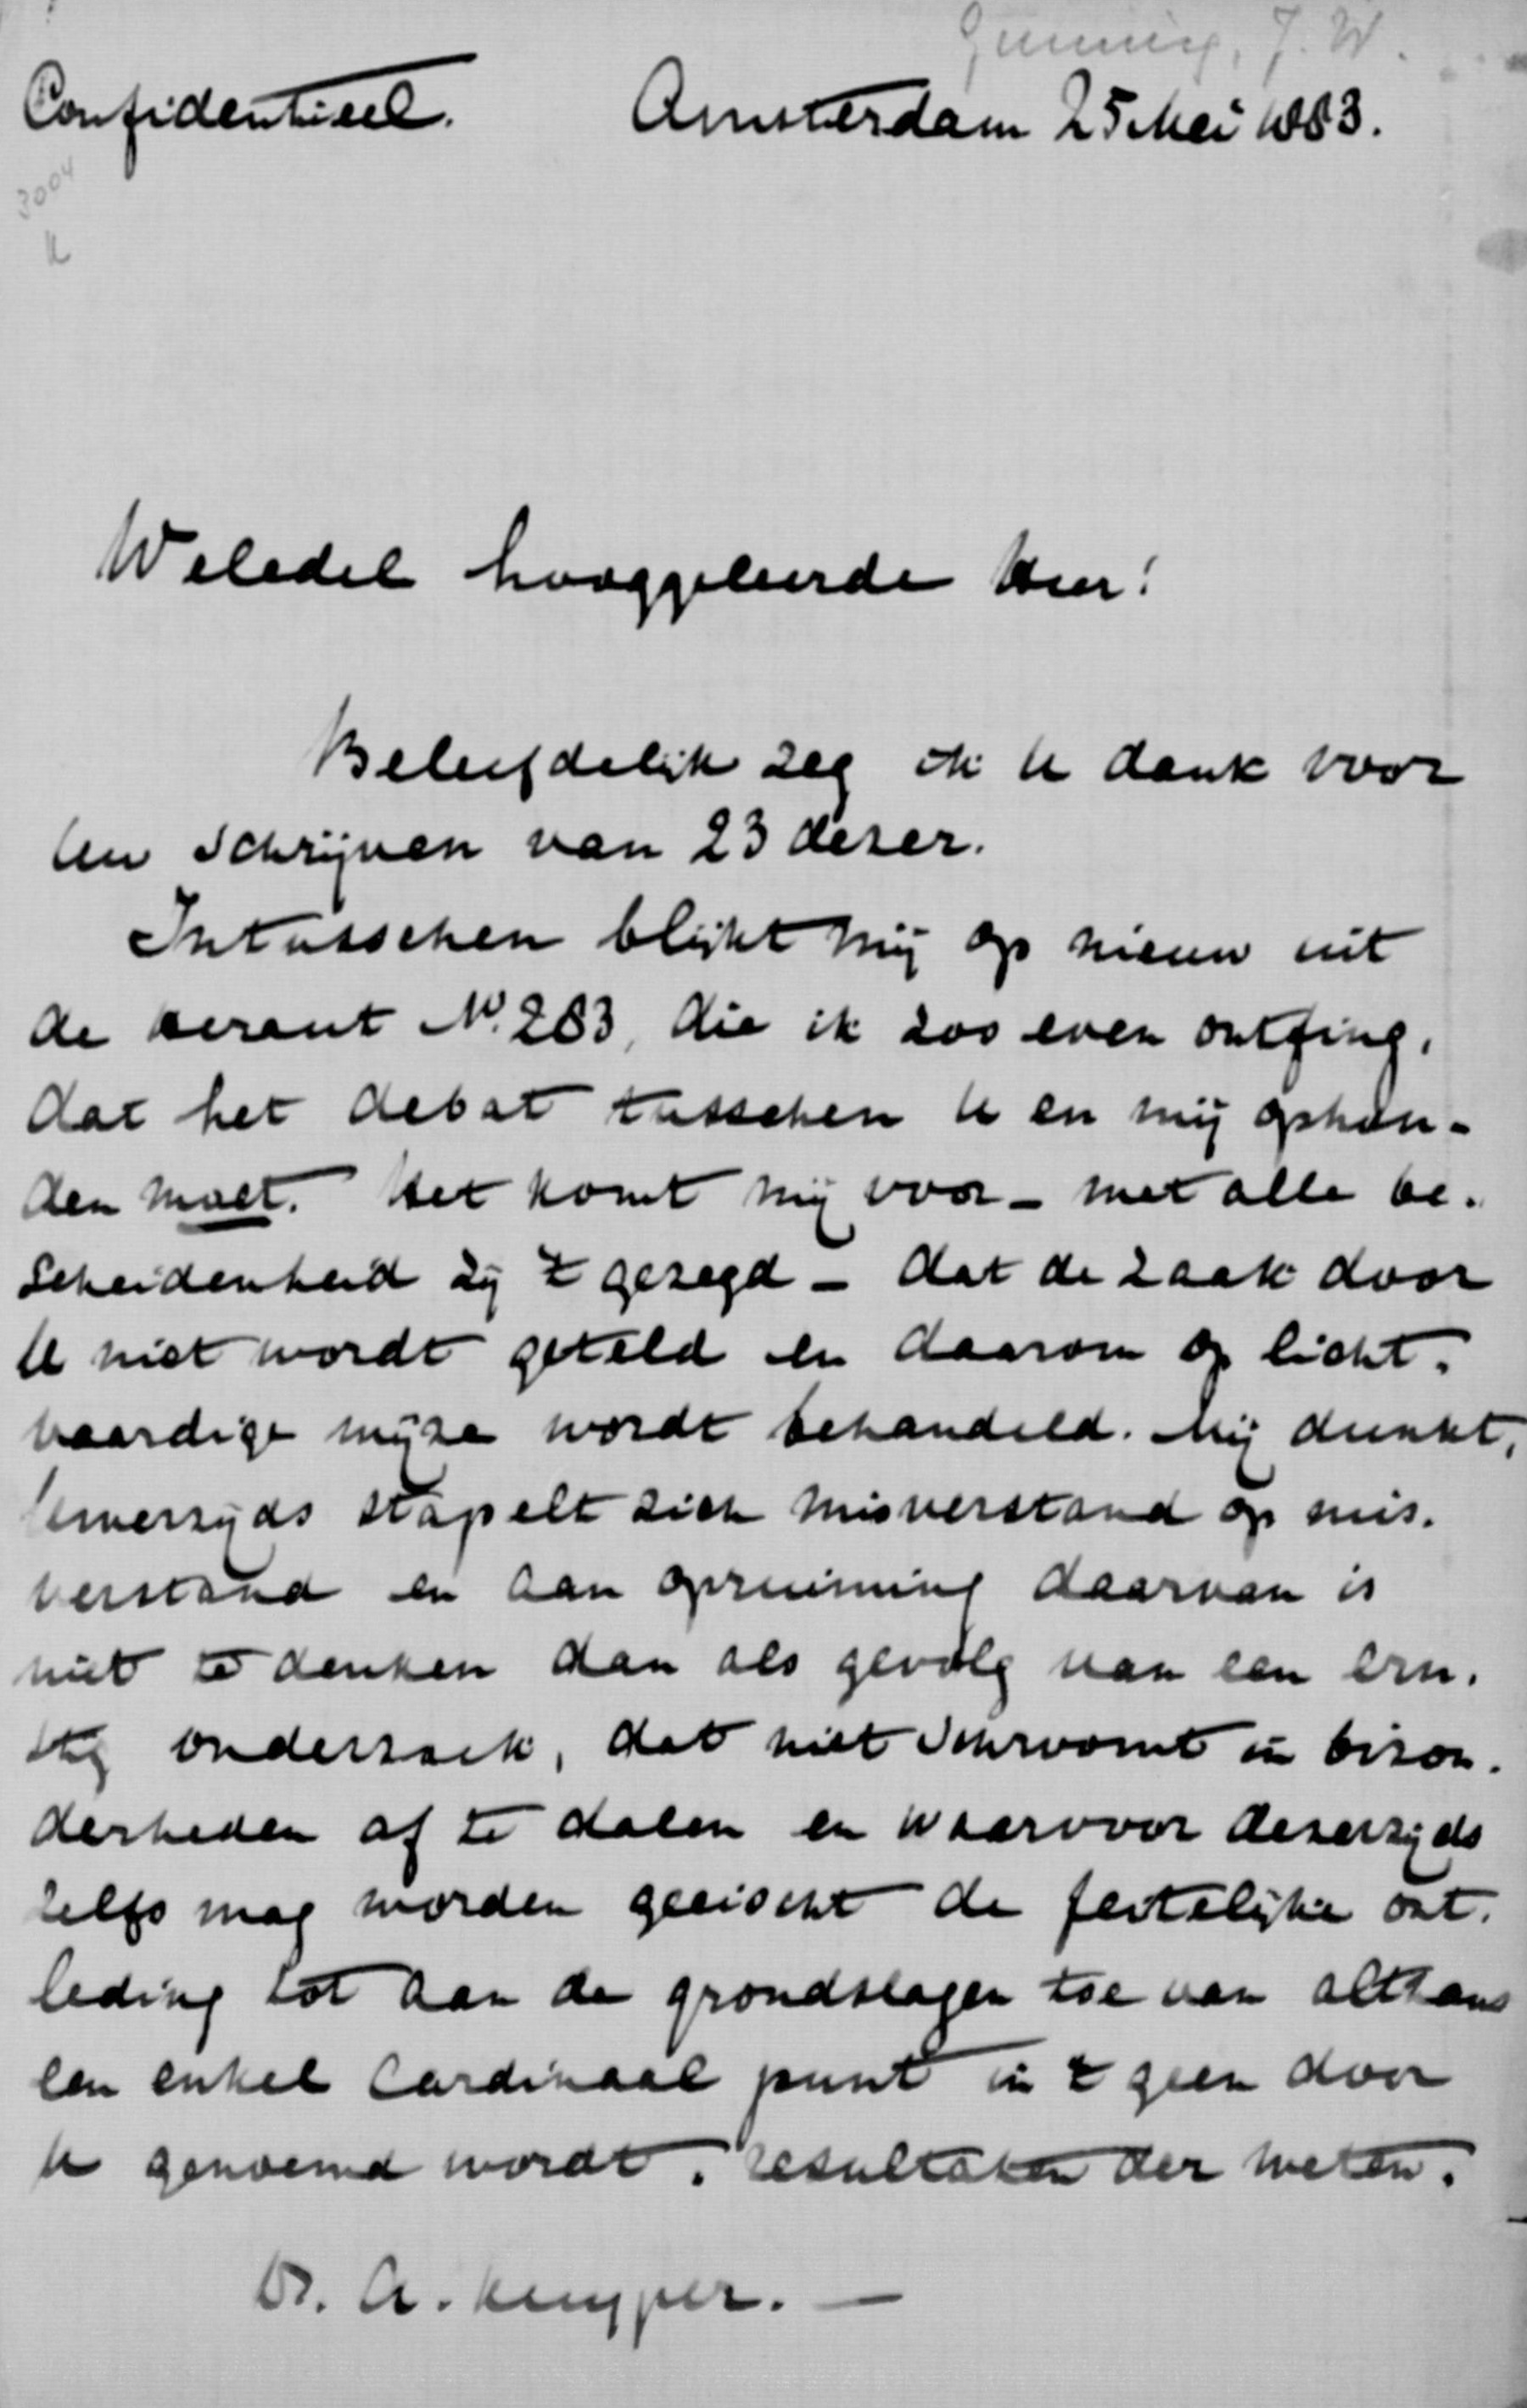 Gunning, J. W.
Confidentieel. Amsterdam 25 Mei 1883.
3004
Weledel hooggeleerde Heer!
Beleefdelijk zeg ik U dank voor
Uw schrijven van 23 dezer.
Intusschen blijkt mij op nieuw uit
de Heraut No. 283, die ik zoo even ontfing,
dat het debat tusschen U en mij ophou-
den moet. Het komt mij voor - met alle be-
scheidenheid zij 't gezegd - dat de zaak door
U niet wordt geteld en daarom op licht-
vaardige wijze wordt behandeld. Mij dunkt,
Uwerzijds stapelt zich misverstand op mis-
verstand en aan opruiming daarvan is
niet te denken dan als gevolg van een ern-
stig onderzoek, dat niet schroomt in bizon-
derheden af te dalen en waarvoor dezerzijds
zelfs mag worden geeischt de feitelijke ont-
leding tot aan de grondslagen toe van althans
een enkel cardinaal punt in 't geen door
U genoemd wordt: "resultaten der weten-
Dr. A. Kuyper. —